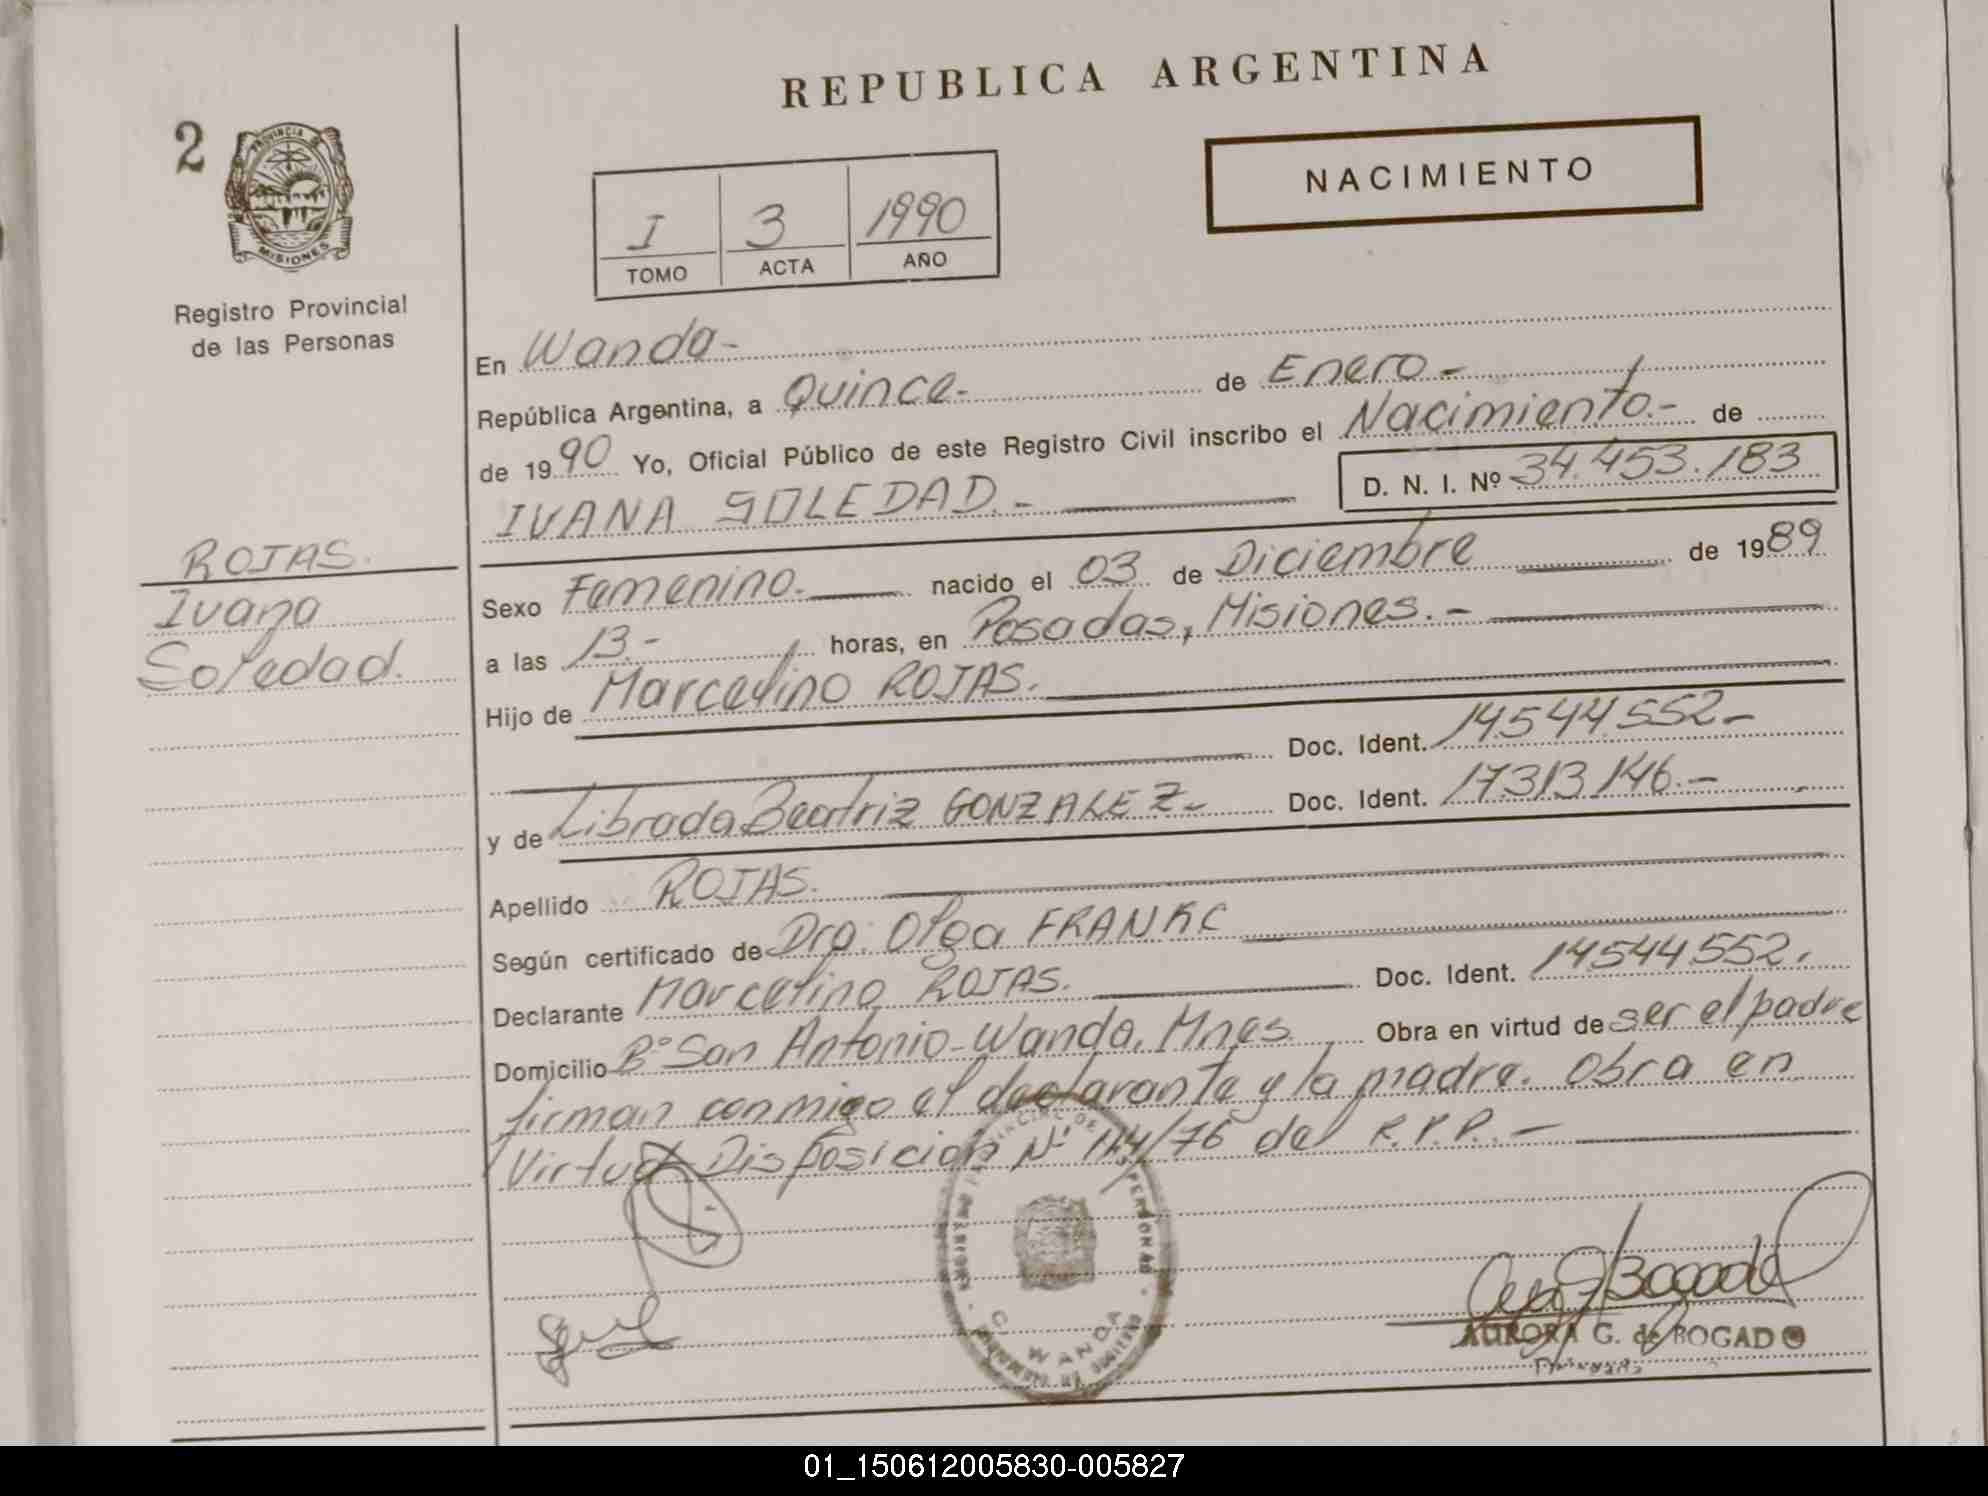 REPUBLICA ARGENTINA
2
PROVINCIA DE
MISIONES
Registro Provincial
de las Personas
NACIMIENTO
I 3 1990
TOMO ACTA AÑO
En Wanda-
República Argentina, a Quince- de Enero-
de 1990 Yo, Oficial Público de este Registro Civil inscribo el Nacimiento.- de
IVANA SOLEDAD.- D. N. I. Nº 34.453.183
ROJAS.
Ivana
Soledad.
Sexo Femenino. nacido el 03 de Diciembre de 1989
a las 13.- horas, en Posadas, Misiones.-
Hijo de Marcelino ROJAS.
Doc. Ident. 14544552-
y de Librada Beatriz GONZALEZ- Doc. Ident. 17.313.146.-
Apellido ROJAS.
Según certificado de Dra. Olga FRANKC
Declarante Marcelino ROJAS. Doc. Ident. 14544552.
Domicilio Bº San Antonio-Wanda, Mnes. Obra en virtud de ser el padre
firman conmigo el declarante y la madre. Obra en
Virtud Disposición Nº 114/76 del R.P.P.-
WANDA
AURORA G. de BOGADO
01_150612005830-005827